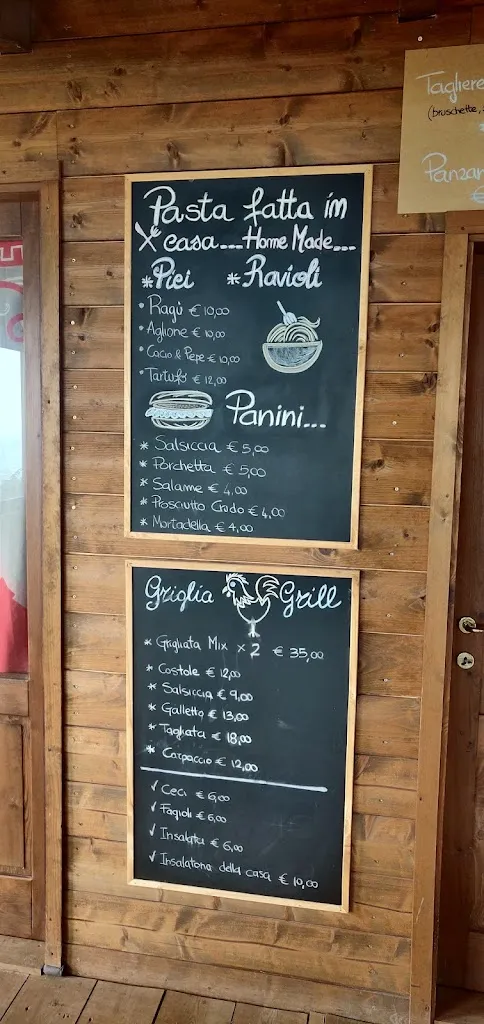 Pasta fatta in
casa...Home Made...
*Pici *Ravioli
• Ragù € 10,00
• Aglione € 10,00
• Cacio & Pepe € 10,00
• Tartufo € 12,00
Panini...
* Salsiccia € 5,00
* Porchetta € 5,00
* Salame € 4,00
* Prosciutto Crudo € 4,00
* Mortadella € 4,00
Griglia Grill
* Grigliata Mix x 2 € 35,00
* Costole € 12,00
* Salsiccia € 9,00
* Galletto € 13,00
* Tagliata € 18,00
* Carpaccio € 12,00
✓ Ceci € 6,00
✓ Fagioli € 6,00
✓ Insalata € 6,00
✓ Insalatona della casa € 10,00
Tagliere
(bruschette,
Panzan
€